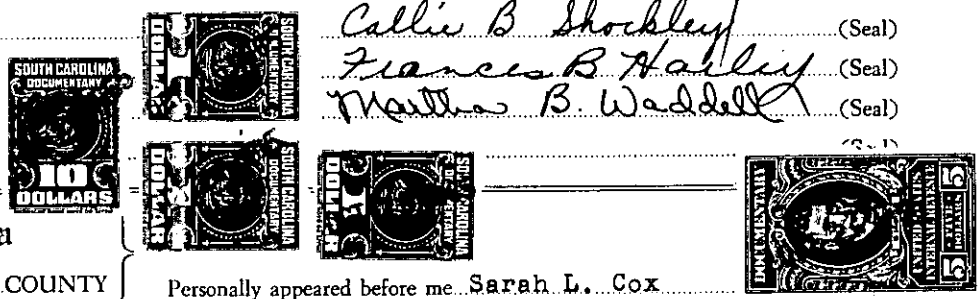 Callie B Shockley (Seal)
Frances B Hailey (Seal)
Martha B. Waddell (Seal)
(Seal)
SOUTH CAROLINA
DOCUMENTARY
10
DOLLARS
SOUTH CAROLINA
DOCUMENTARY
DOLLAR
SOUTH CAROLINA
DOCUMENTARY
DOLLAR
SOUTH CAROLINA
DOLLAR
DOCUMENTARY
UNITED STATES
INTERNAL REVENUE
5 5
COUNTY
Personally appeared before me Sarah L. Cox